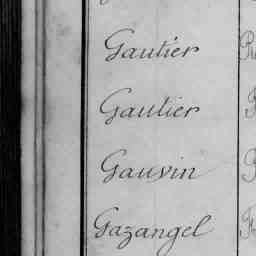 Gautier
Gautier
Gauvin
Gazangel